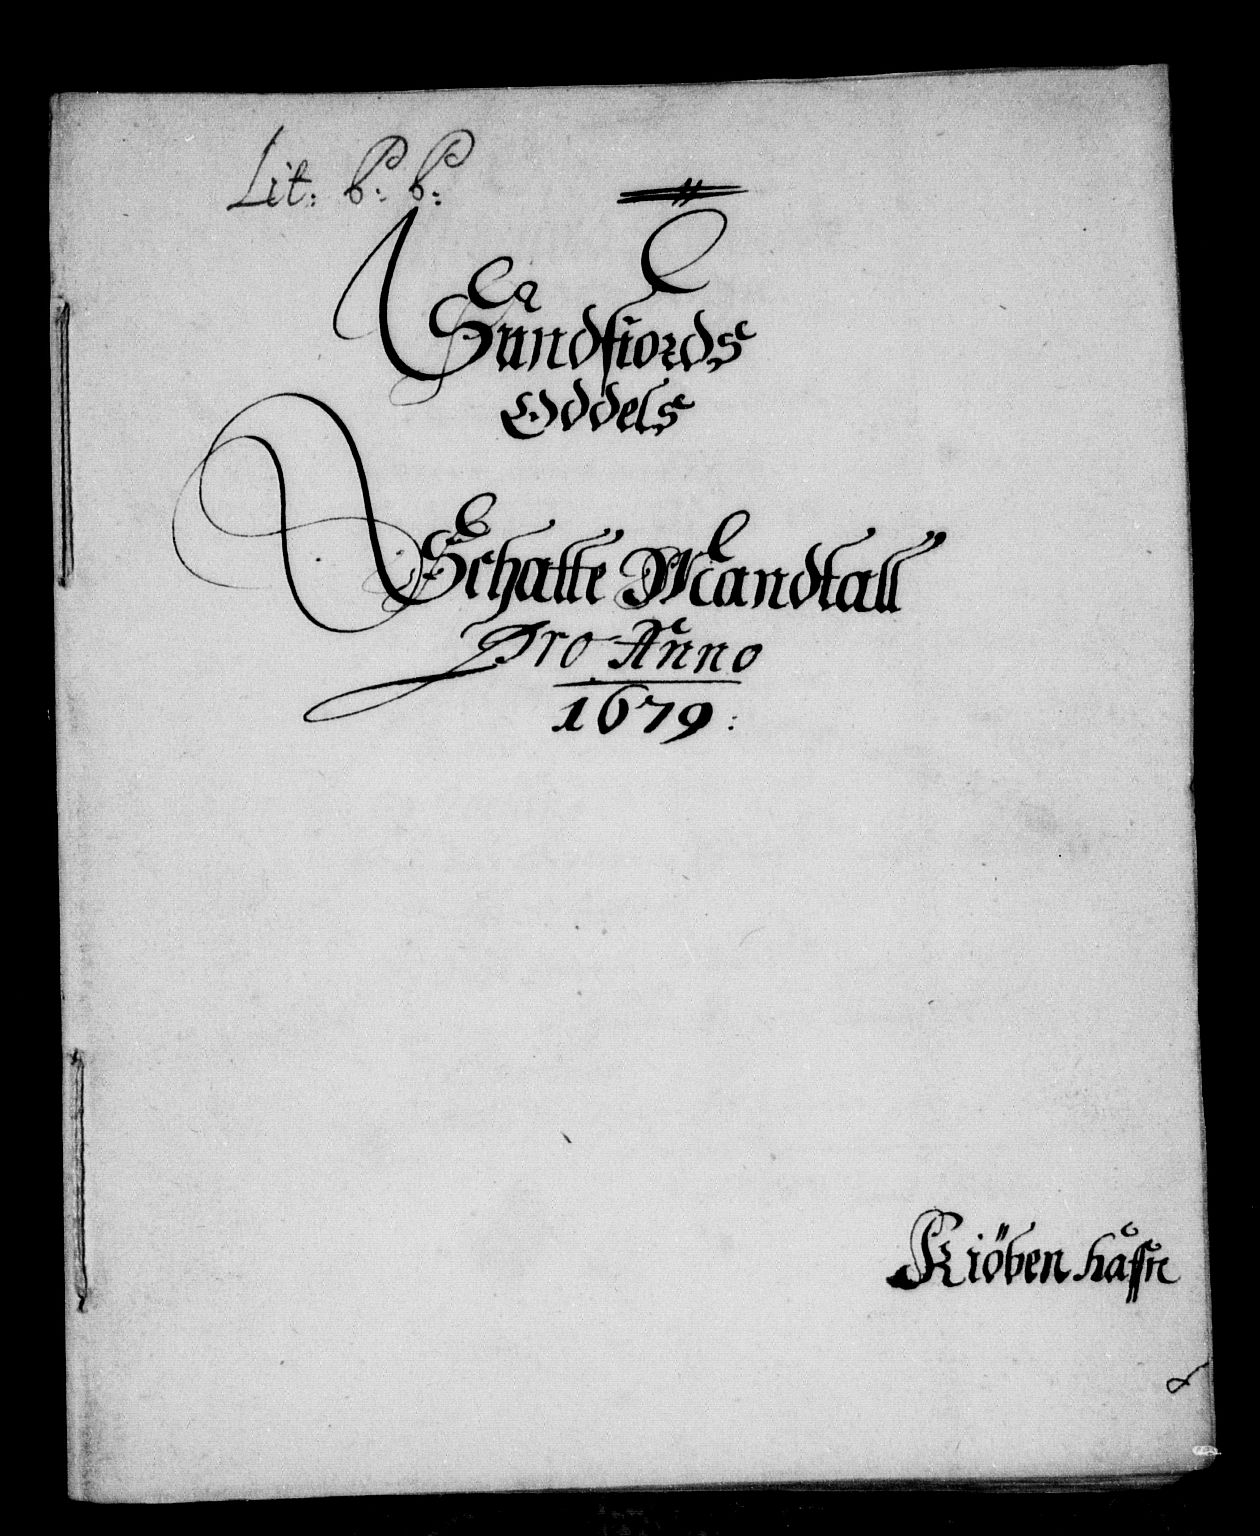 Lit: B: B:
Sundfiords
Oddels
Schatte Mandtall
Pro Anno
1679:
Kiöben haffn